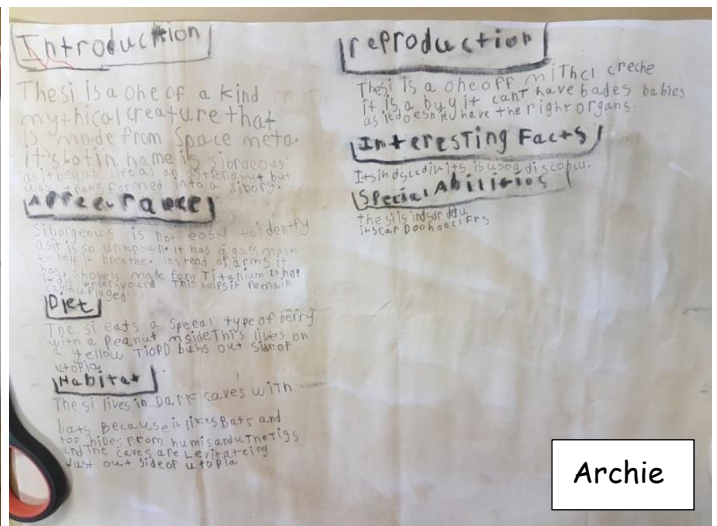 Introduction
The si is a one of a kind
mythical creature that
is made from Space meta.
it's latin name is sibraeous
as it began life as an
but
was transformed into a siborg.
Appearance
Siborgeous is not easy to identify
as it is so unknown. It has a gass mask
to help it breathe. instead of arms it
has shovels made from Titanium so that
it underground This helps it remain
Diet
The si eats a Specal type of berry
with a Peanut inside This lives on
a Yellow out side of
utopia
Habitat
The si lives in Dark caves with
bats Because it likes Bats and
too hides from
and The caves are Leviteteing
Just out side of utopia
reproduction
The si is a one off creche
it is a buy it cant have bades babies
as it doesn't have the right organs.
Interesting Facts
is
Special Abilities
the si is
Archie